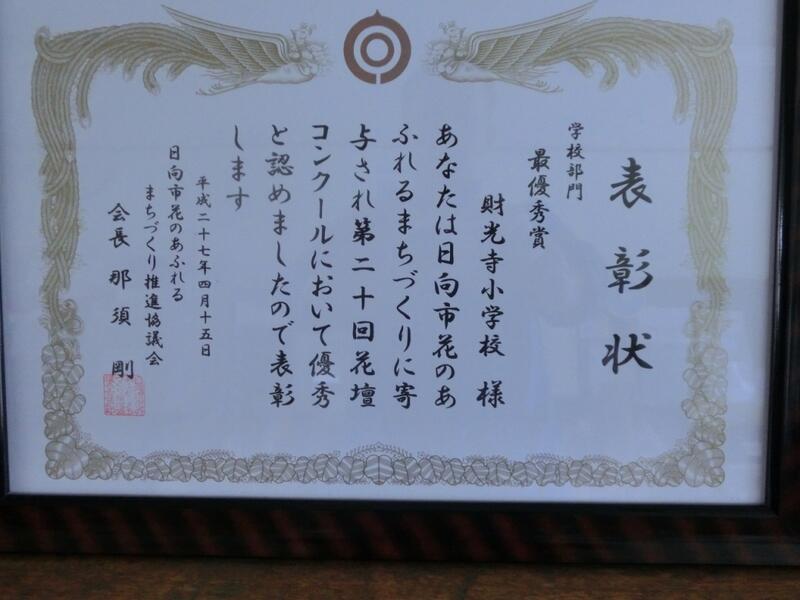 表彰状
学校部門
最優秀賞
財光寺小学校 様
あなたは日向市花のあ
ふれるまちづくりに寄
与され第二十回花壇
コンクールにおいて優秀
と認めましたので表彰
します
平成二十七年四月十五日
日向市花のあふれる
まちづくり推進協議会
会長 那須 剛